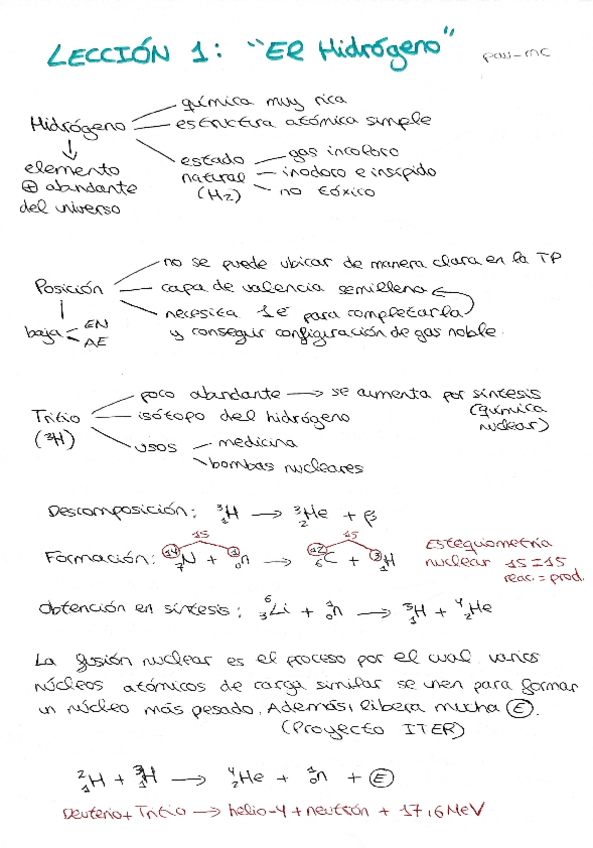 LECCIÓN 1: "El Hidrógeno"
Hidrógeno
química muy rica
estructura atómica simple
estado natural (H₂)
gas incoloro
inodoro e insípido
no tóxico
↓
elemento
⊕ abundante
del universo
Posición
no se puede ubicar de manera clara en la TP
capa de valencia semillena
necesita 1e⁻ para completarla
y conseguir configuración de gas noble.
baja
EN
AE
Tritio
(³H)
poco abundante → se aumenta por síntesis
(química
nuclear)
isótopo del hidrógeno
usos
medicina
bombas nucleares
Descomposición: ³₁H → ³₂He + β
15 15
Formación: ¹⁴₇N + ¹₀n → ¹²₆C + ³₁H
Estequiometría
nuclear 15=15
reac. = prod.
Obtención en síntesis: ⁶₃Li + ¹₀n → ³₁H + ⁴₂He
La fusión nuclear es el proceso por el cual varios
núcleos atómicos de carga similar se unen para formar
un núcleo más pesado. Además, libera mucha Ⓔ.
(Proyecto ITER)
²₁H + ³₁H → ⁴₂He + ¹₀n + Ⓔ
Deuterio + Tritio → helio-4 + neutrón + 17,6 MeV